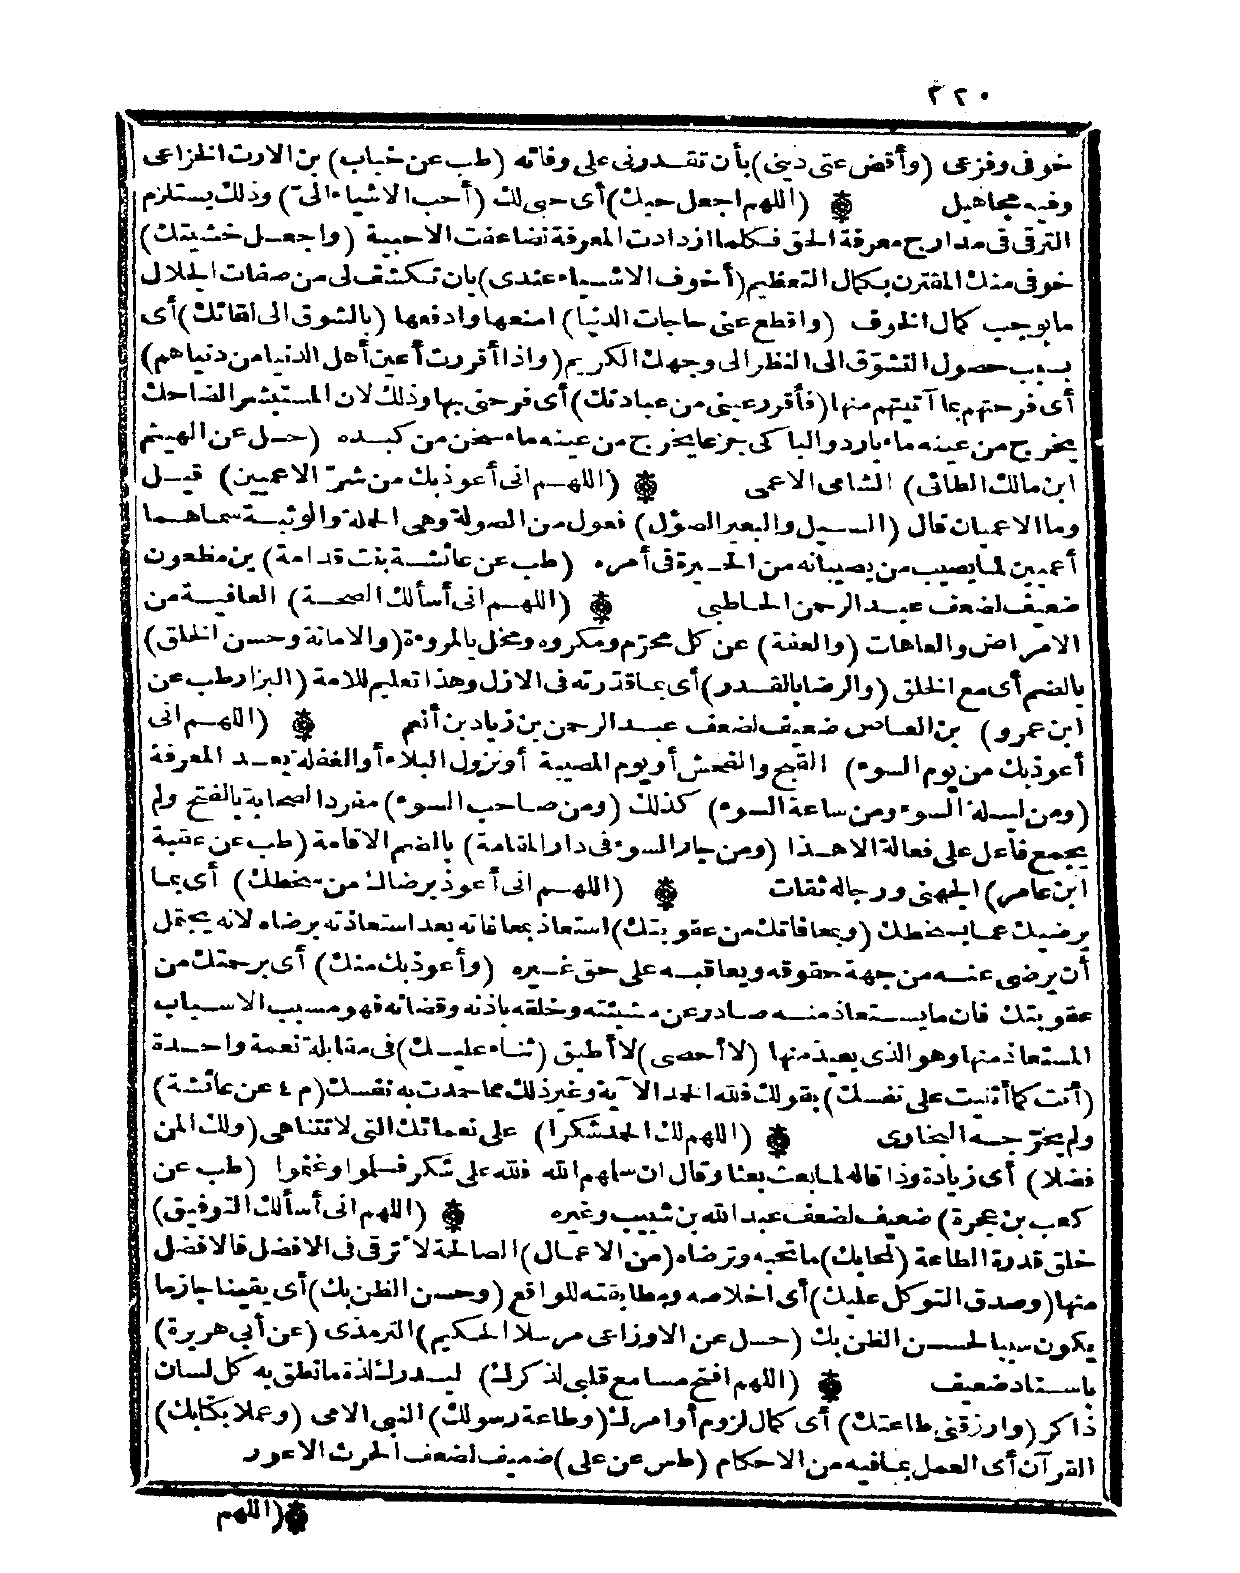 ٢٢٠
خوفى وفزعى (وأقض عنى دينى) بأن تقدرنى على وفائه (طب عن خباب) بن الارت الخزاعى
وفيه مجاهيل ۞ (اللهم اجعل حبك) أى حبى لك (أحب الاشياء الىّ) وذلك يستلزم
الترقى فى مدارج معرفة الحق فكلما ازدادت المعرفة تضاعفت الاحبية (واجعل خشيتك)
خوفى منك المقترن بكمال التعظيم (أخوف الاشياء عندى) بان تكشف لى من صفات الجلال
ما يوجب كمال الخوف (واقطع عنى حاجات الدنيا) امنعها وادفعها (بالشوق الى لقائك) أى
بسبب حصول التشوّق الى النظر الى وجهك الكريم (واذا أقررت أعين أهل الدنيا من دنياهم)
أى فرحتهم بما آتيتهم منها (فأقرر عينى من عبادتك) أى فرحنى بها وذلك لان المستبشر الضاحك
يخرج من عينه ماء بارد والباكى جزعا يخرج من عينه ماء سخن من كبده (حل عن الهيثم
ابن مالك الطائى) الشامى الاعمى ۞ (اللهم انى أعوذ بك من شرّ الاعميين) قيل
وما الاعميان قال (السيل والبعير الصؤل) فعول من الصولة وهى الحملة والوثبة سماهما
أعميين لما يصيب من يصيبانه من الحيرة فى أمره (طب عن عائشة بنت قدامة) بن مظعون
ضعيف لضعف عبد الرحمن الحاطبى ۞ (اللهم انى أسألك الصحة) العافية من
الامراض والعاهات (والعفة) عن كل محرّم ومكروه ومخل بالمروءة (والامانة وحسن الخلق)
بالضم أى مع الخلق (والرضا بالقدر) أى بما قدرته فى الازل وهذا تعليم للامة (البزار طب عن
ابن عمرو) بن العاص ضعيف لضعف عبد الرحمن بن زياد بن أنعم ۞ (اللهم انى
أعوذ بك من يوم السوء) القبح والفحش أو يوم المصيبة أو نزول البلاء أو الغفلة بعد المعرفة
(ومن ليلة السوء ومن ساعة السوء) كذلك (ومن صاحب السوء) مفرد الصحابة بالفتح ولم
يجمع فاعل على فعالة الا هذا (ومن جار السوء فى دار المقامة) بالضم الاقامة (طب عن عقبة
ابن عامر) الجهنى ورجاله ثقات ۞ (اللهم انى أعوذ برضاك من سخطك) أى بما
يرضيك عما يسخطك (وبمعافاتك من عقوبتك) استعاذ بمعافاته بعد استعاذته برضاه لانه يحتمل
أن يرضى عنه من جهة حقوقه ويعاقبه على حق غيره (وأعوذ بك منك) أى برحمتك من
عقوبتك فان ما يستعاذ منه صادر عن مشيئته وخلقه باذنه وقضائه فهو مسبب الاسباب
المستعاذ منها وهو الذى يعيذ منها (لا أحصى) لا أطيق (ثناء عليك) فى مقابلة نعمة واحدة
(أنت كما أثنيت على نفسك) بقولك فلله الحمد الآية وغير ذلك مما حمدت به نفسك (م ٤ عن عائشة)
ولم يخرّجه البخاوى ۞ (اللهم لك الحمد شكرا) على نعمائك التى لا تتناهى (ولك المن
فضلا) أى زيادة وذا قاله لما بعث بعثا وقال ان سلمهم الله فلله على شكر فسلموا وغنموا (طب عن
كعب بن عجرة) ضعيف لضعف عبد الله بن شبيب وغيره ۞ (اللهم انى أسألك التوفيق)
خلق قدرة الطاعة (لمحابك) ما تحبه وترضاه (من الاعمال) الصالحة لأترقى فى الافضل فالافضل
منها (وصدق التوكل عليك) أى اخلاصه ومطابقته للواقع (وحسن الظن بك) أى يقينا جازما
يكون سببا لحسن الظن بك (حل عن الاوزاعى مرسلا الحكيم) الترمذى (عن أبى هريرة)
باسناد ضعيف ۞ (اللهم افتح مسامع قلبى لذكرك) ليدرك لذة ما نطق به كل لسان
ذاكر (وارزقنى طاعتك) أى كمال لزوم أوامرك (وطاعة رسولك) النبى الامى (وعملا بكتابك)
القرآن أى العمل بما فيه من الاحكام (طس عن على) ضعيف لضعف الحرث الاعور
۞ (اللهم